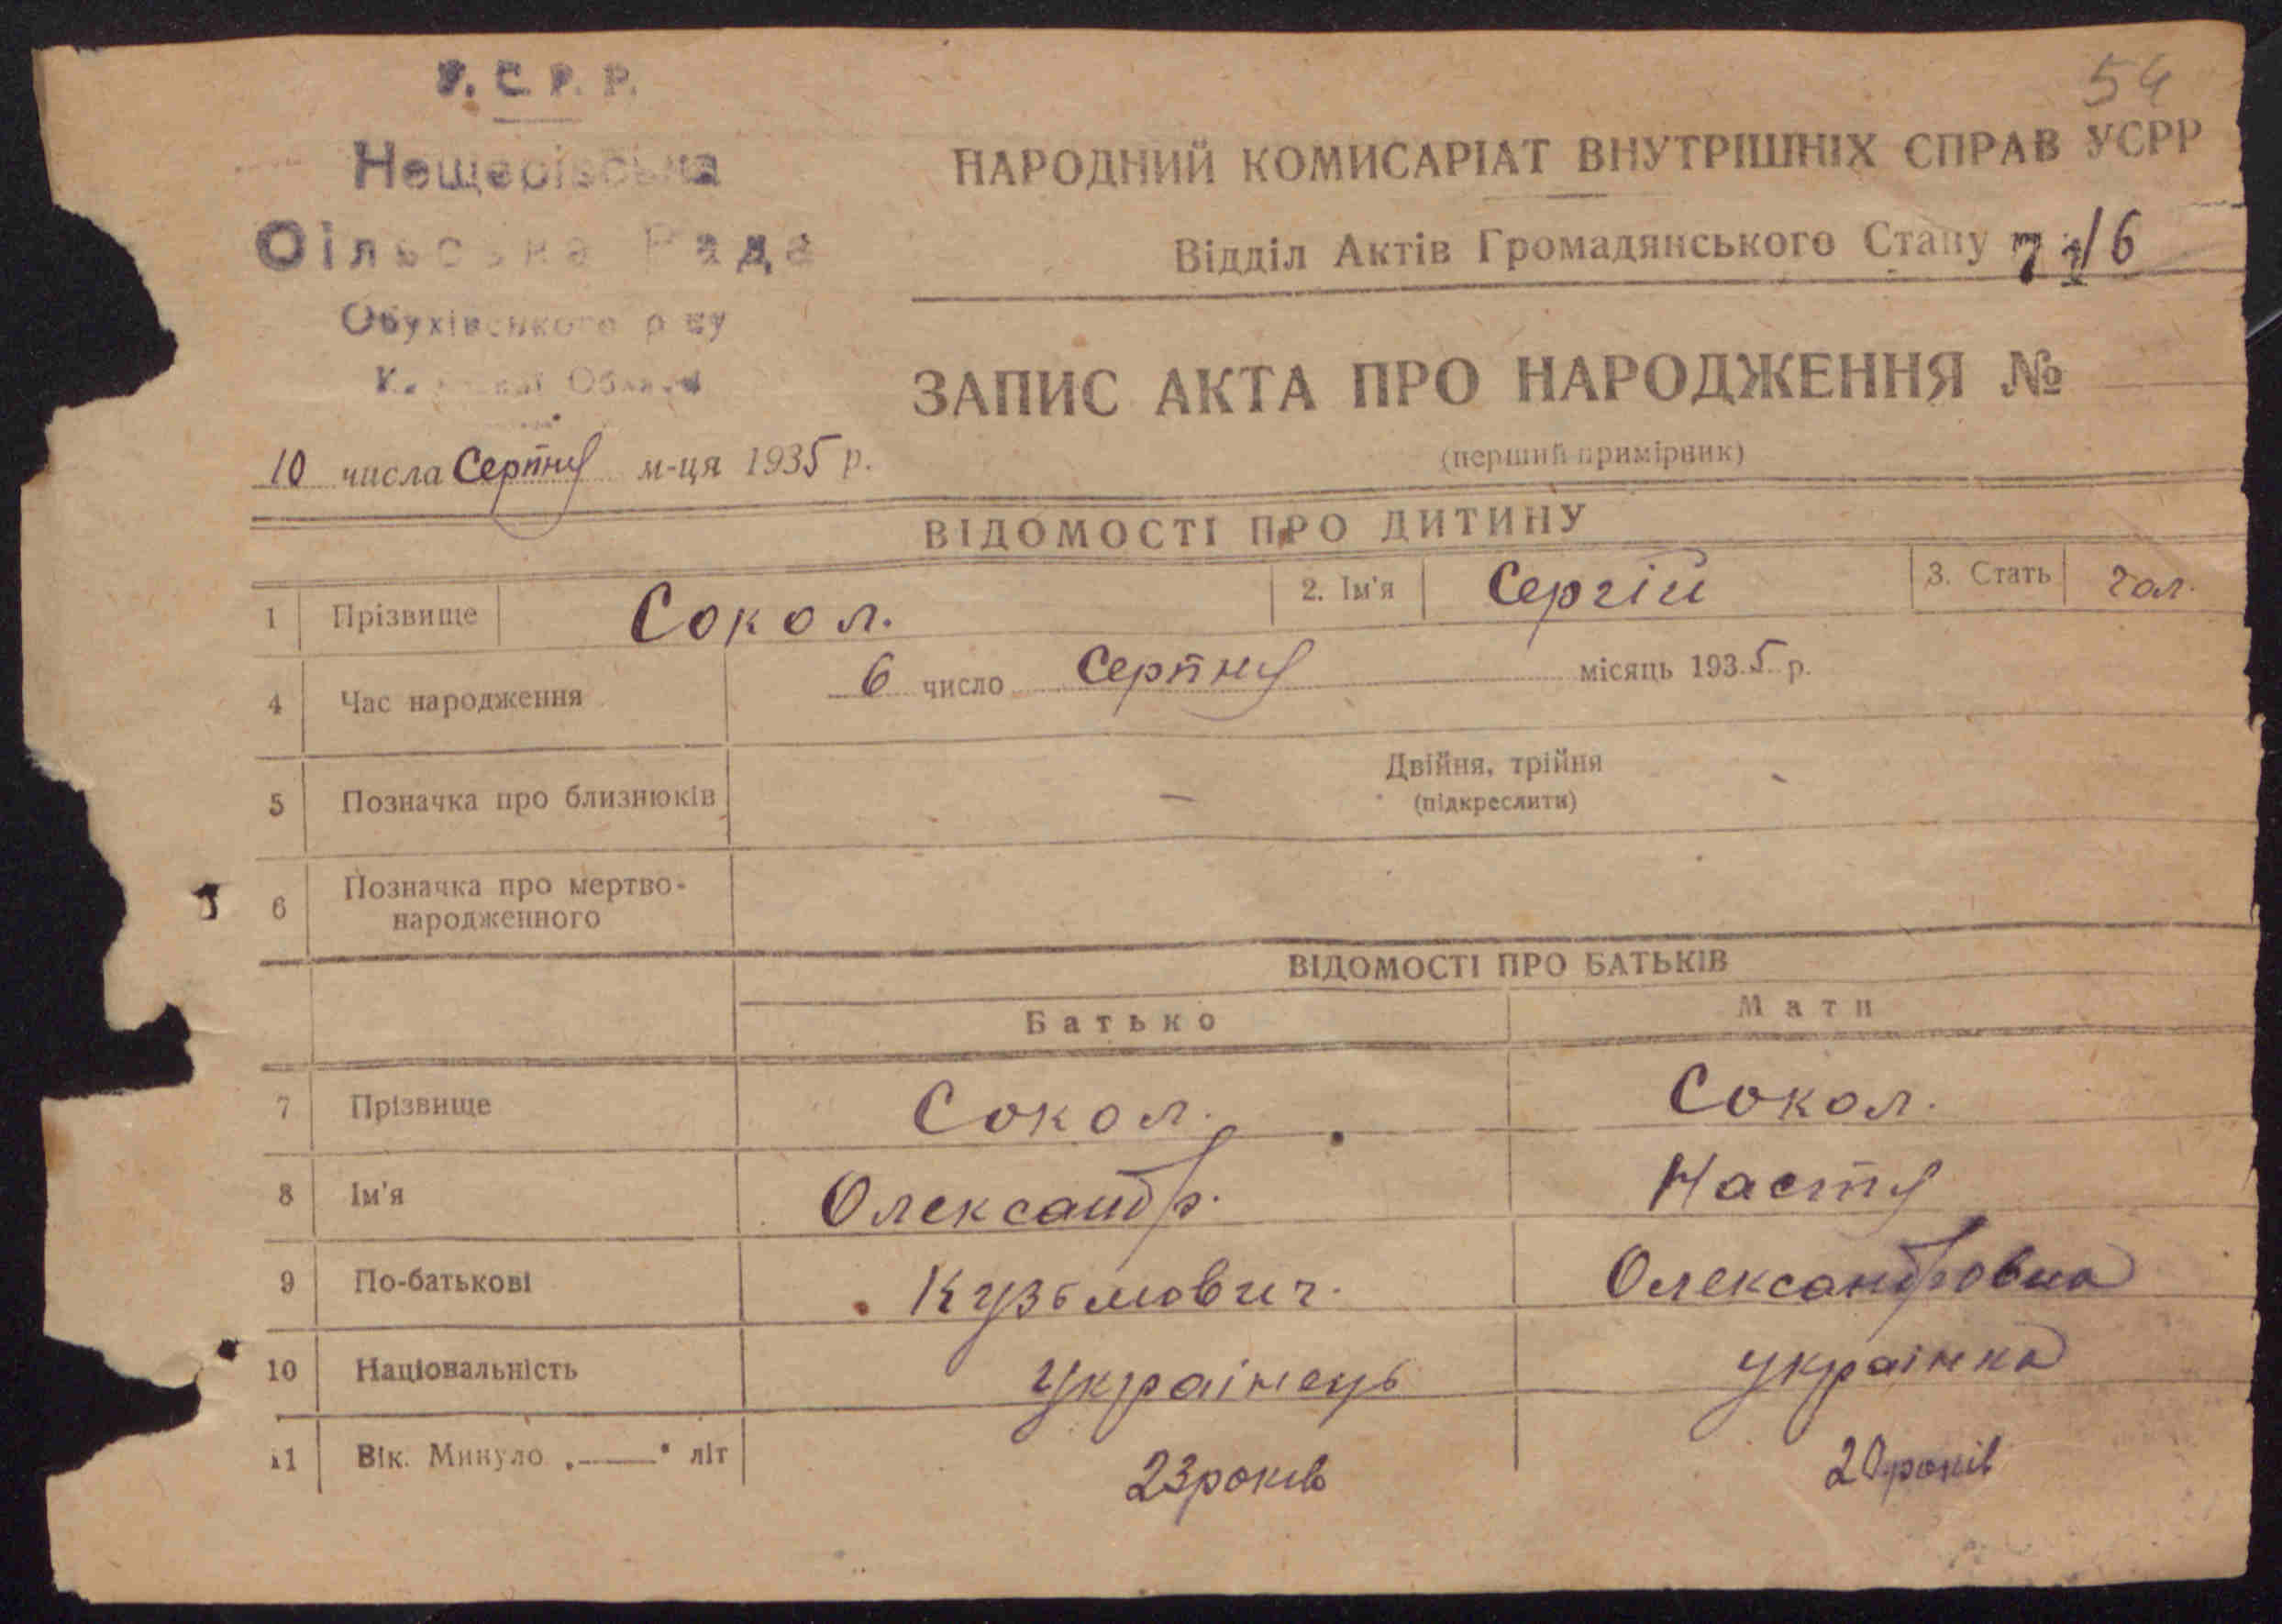 У.С.Р.Р.
Нещерівська
Сільська Рада
Обухівського р-ну
54
НАРОДНИЙ КОМИСАРІАТ ВНУТРІШНІХ СПРАВ УСРР
Відділ Актів Громадянського Стану
ЗАПИС АКТА ПРО НАРОДЖЕННЯ №
(перший примірник)
10 числа Серпня м-ця 1935 р.
ВІДОМОСТІ ПРО ДИТИНУ
1 Прізвище Сокол. 2. Ім'я Сергій 3. Стать чол.
4 Час народження 6 число Серпня місяць 1935 р.
5 Позначка про близнюків - Двійня, трійня -
(підкреслити)
6 Позначка про мертво-
народженного
ВІДОМОСТІ ПРО БАТЬКІВ
Батько Мати
7 Прізвище Сокол. Сокол.
8 Ім'я Олександр. Настя
9 По-батькові Кузьмович. Олександровна
10 Національність Українець українка
11 Вік. Минуло „——" літ 23 років 20 років